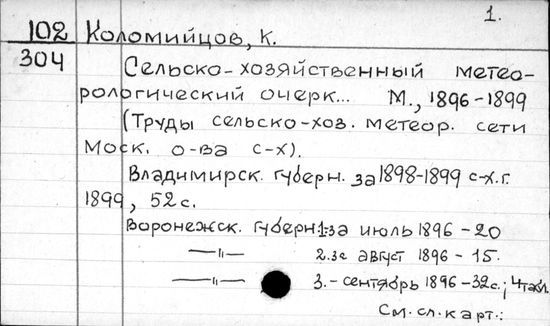 1.
102 Коломийцов, К.
304
Сельско-хозяйственный метео-
рологический очерк... М., 1896-1899
(Труды сельско-хоз. метеор. сети
Моск. о-ва с-х).
Владимирск. губерн. за 1898-1899 с-х.г.
1899, 52с.
Воронежск. губерн 1.за июль 1896 - 20
—"— 2.за август 1896 - 15.
—"— 3.- сентябрь 1896 - 32с.; 4табл.
См. сл. карт.: